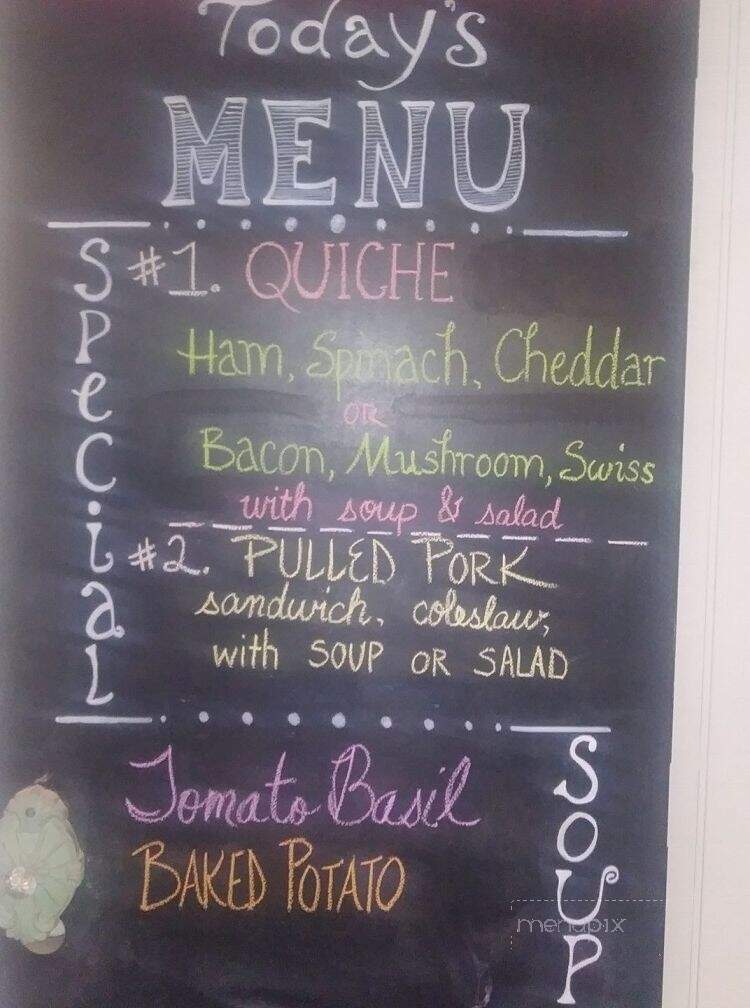 Today's
MENU
Special
#1. QUICHE
Ham, Spinach, Cheddar
OR
Bacon, Mushroom, Swiss
with soup & salad
#2. PULLED PORK
sandwich, coleslaw,
with SOUP OR SALAD
SOUP
Tomato Basil
BAKED POTATO
menupix